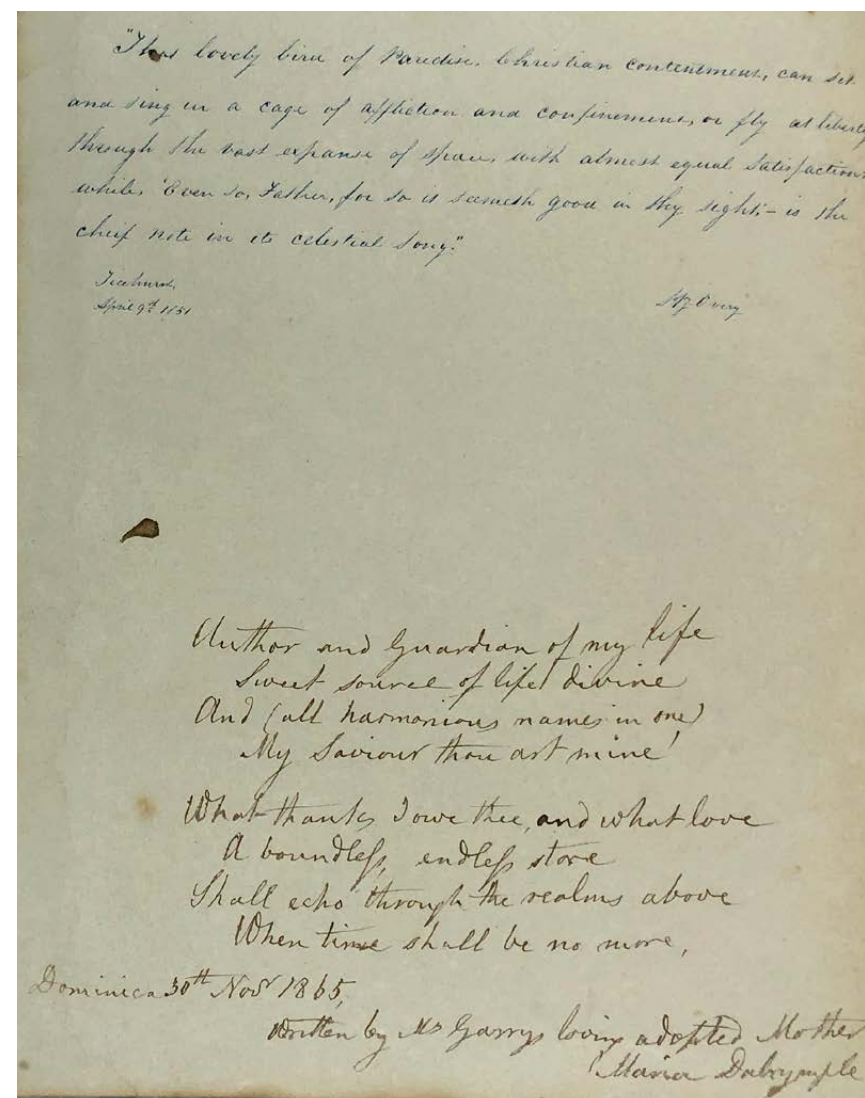 "That lovely bird of Paradise, Christian contentment, can sit
and sing in a cage of affliction and confinement, or fly at liberty
through the vast expanse of space, with almost equal satisfaction:
while, 'Even so, Father, for so it seemeth good in thy sight;'- is the
chief note in its celestial song."
Ticehurst,
April 9th 1851
Author and Guardian of my life
Sweet source of life divine
And (all harmonious names in one)
My Saviour thou art mine!
What thanks I owe thee, and what love
A boundless, endless store
Shall echo through the realms above
When time shall be no more,
Dominica 30th Novr 1865,
Written by Mrs Garrys loving adopted Mother
Maria Dalrymple